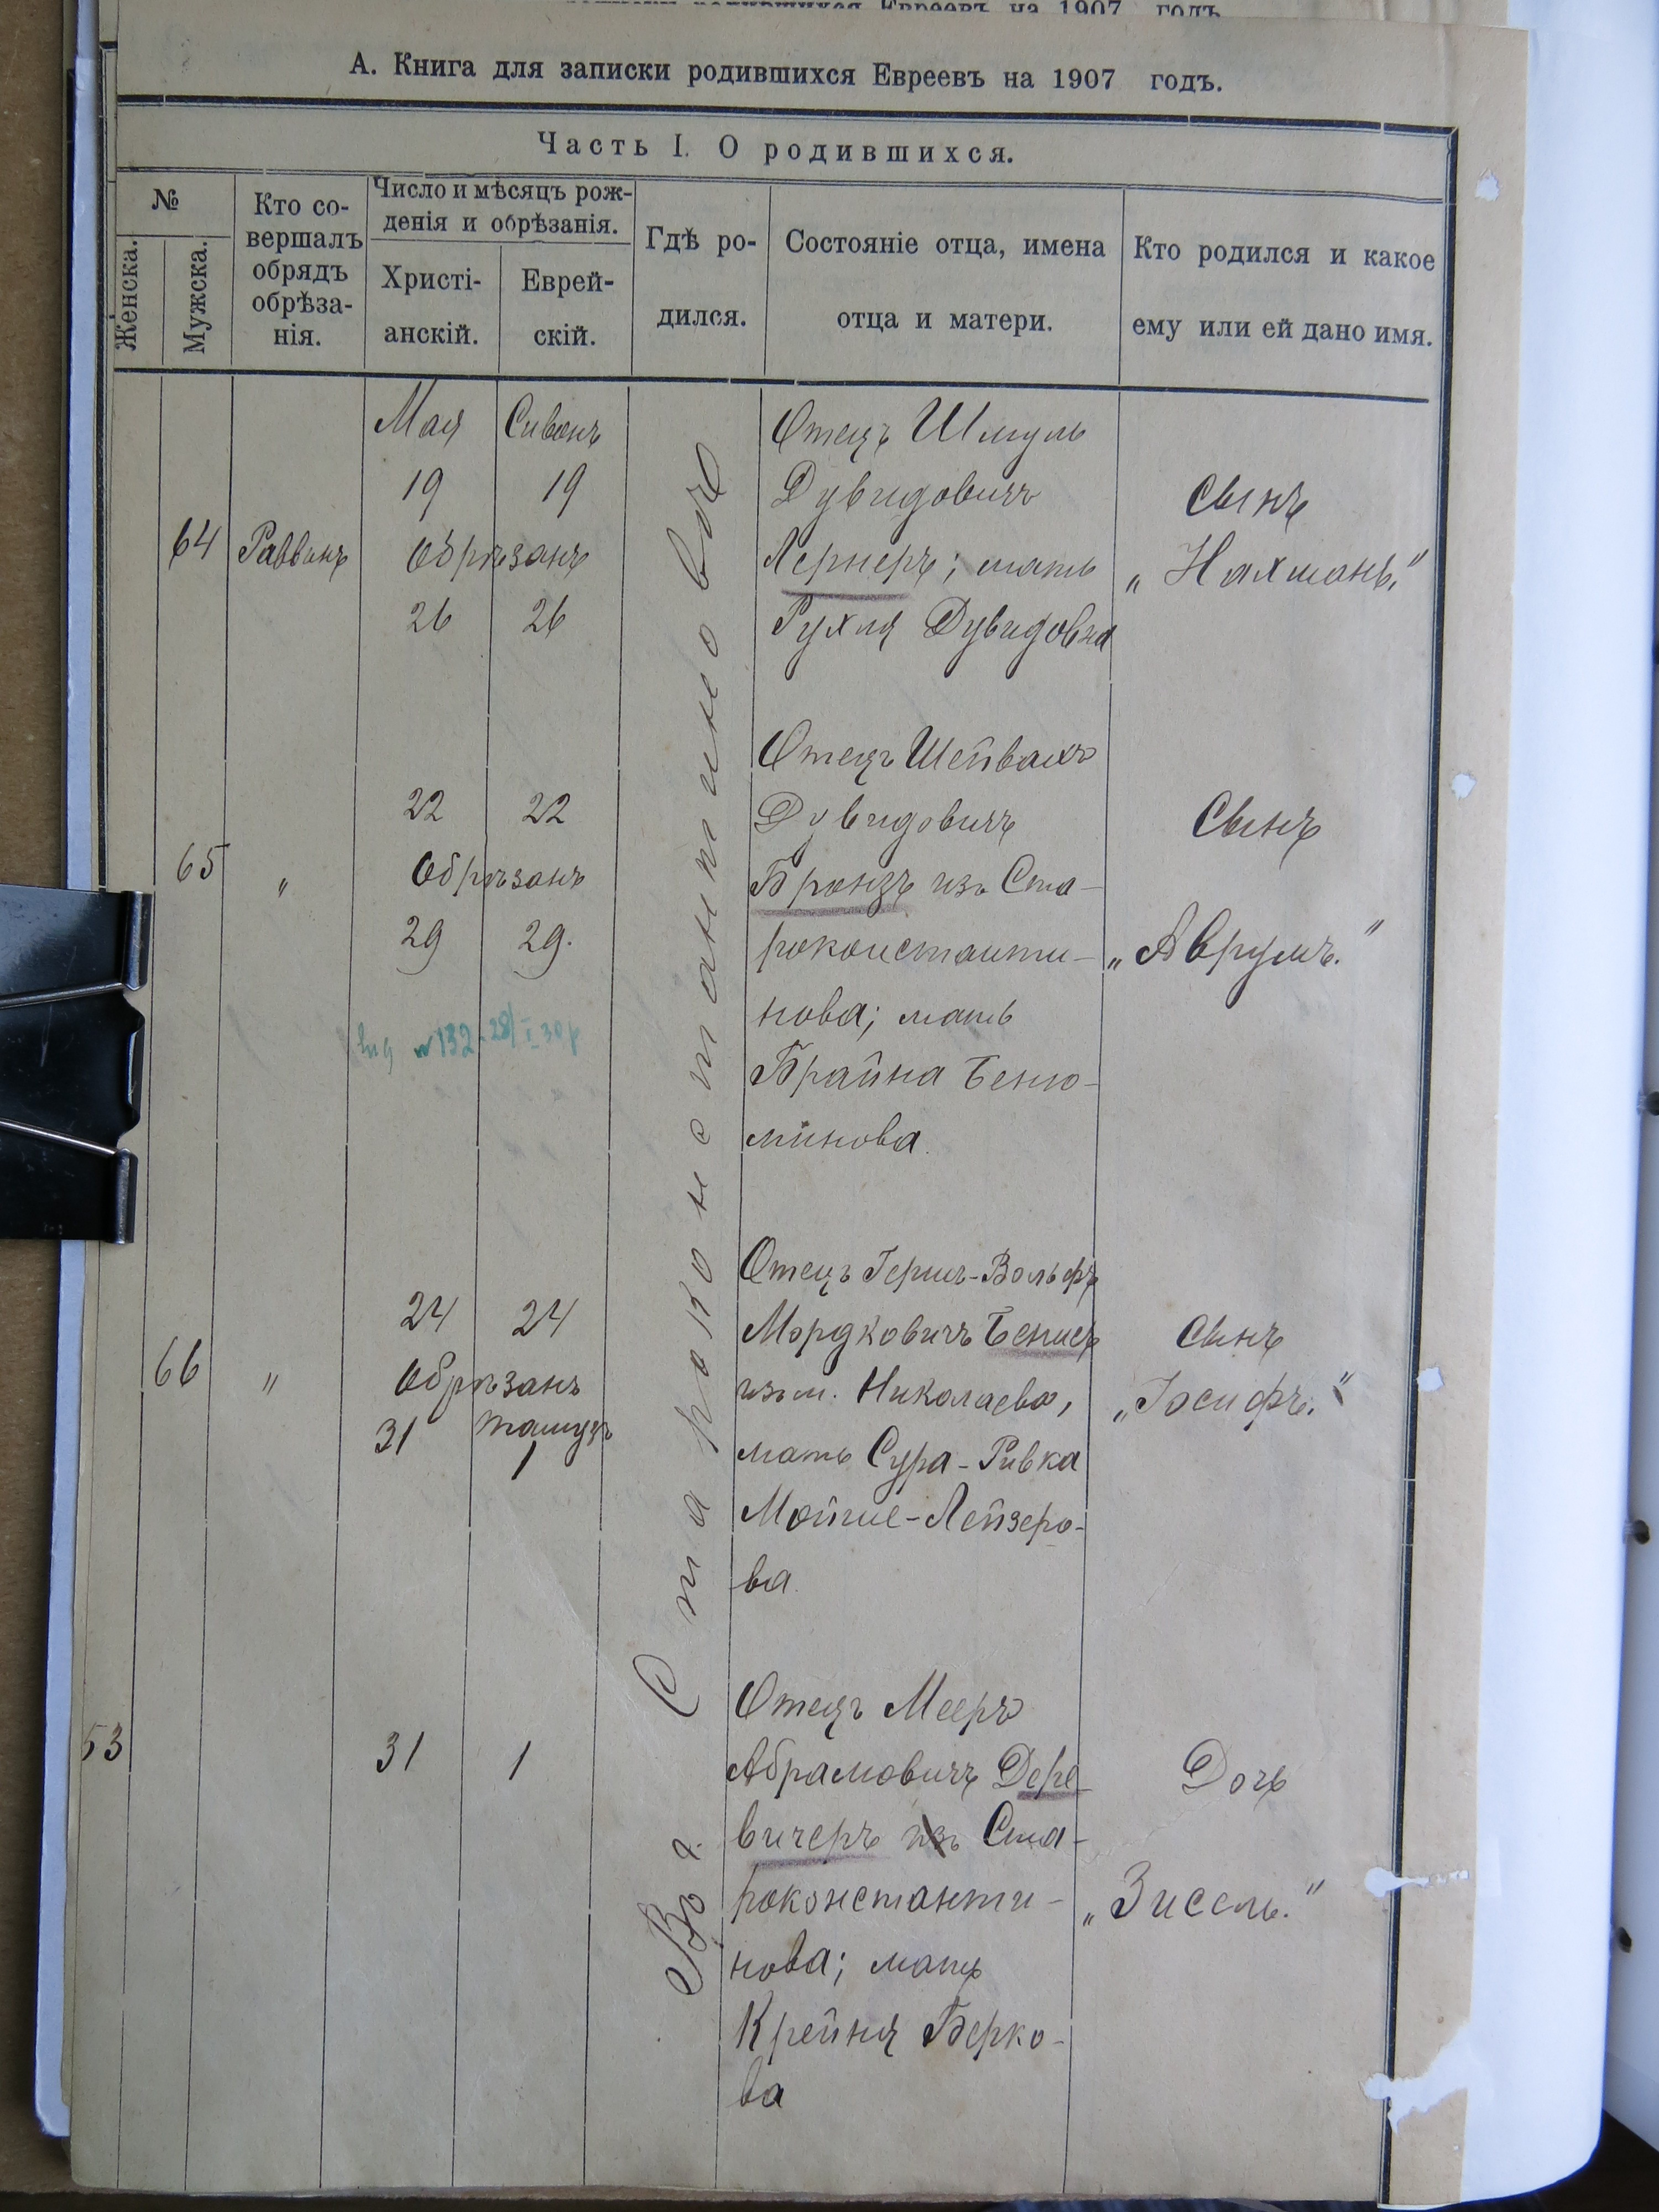 А. Книга для записки родившихся Евреевъ на 1907 годъ.
Часть I. О родившихся.
№
Женска.
Мужска.
Кто со-
вершалъ
обрядъ
обрѣза-
нія.
Число и мѣсяцъ рож-
денія и обрѣзанія.
Христі-
анскій.
Еврей-
скій.
Гдѣ ро-
дился.
Состояніе отца, имена
отца и матери.
Кто родился и какое
ему или ей дано имя.
Въ г. Староконстантиновѣ
64
Раввинъ
Мая Сиванъ
19 19
Обрѣзанъ
26 26
Отецъ Шмуль
Дувидовичъ
Лернеръ; мать
Рухля Дувидовна
Сынъ
„Нахманъ."
65
"
22 22
Обрѣзанъ
29 29.
№132 28/I 30
Отецъ Шейвахъ
Дувидовичъ
Бронзъ изъ Ста-
роконстанти-
нова; мать
Брайна Беню-
минова.
Сынъ
„Аврумъ."
66
"
24 24
Обрѣзанъ
31 Тамузъ
1
Отецъ Гершъ-Вольфъ
Мордковичъ Бенисъ
изъ м. Николаева,
мать Сура-Ривка
Мойше-Лейзеро-
ва
Сынъ
„Іосифъ."
53
31 1
Отецъ Мееръ
Абрамовичъ Дере-
вичеръ изъ Ста-
роконстанти-
нова; мать
Крейня Берко-
ва
Дочь
„Зисель."